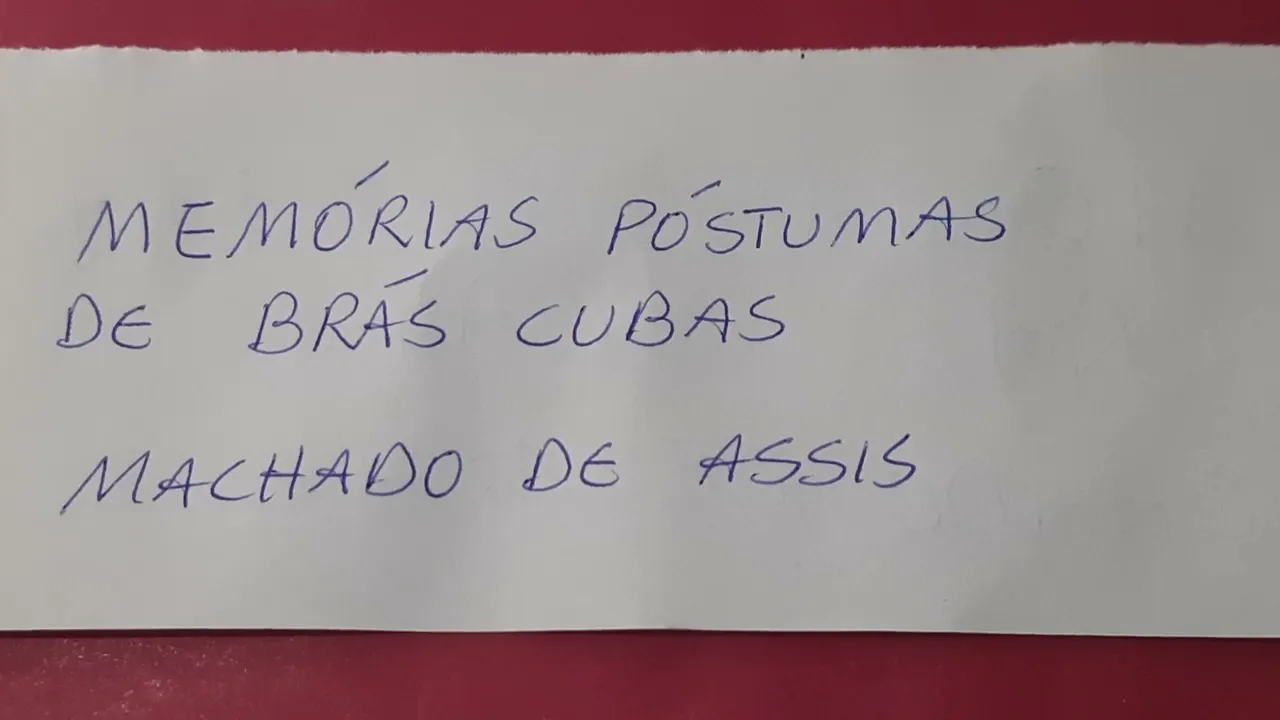 MEMÓRIAS PÓSTUMAS
DE BRÁS CUBAS
MACHADO DE ASSIS